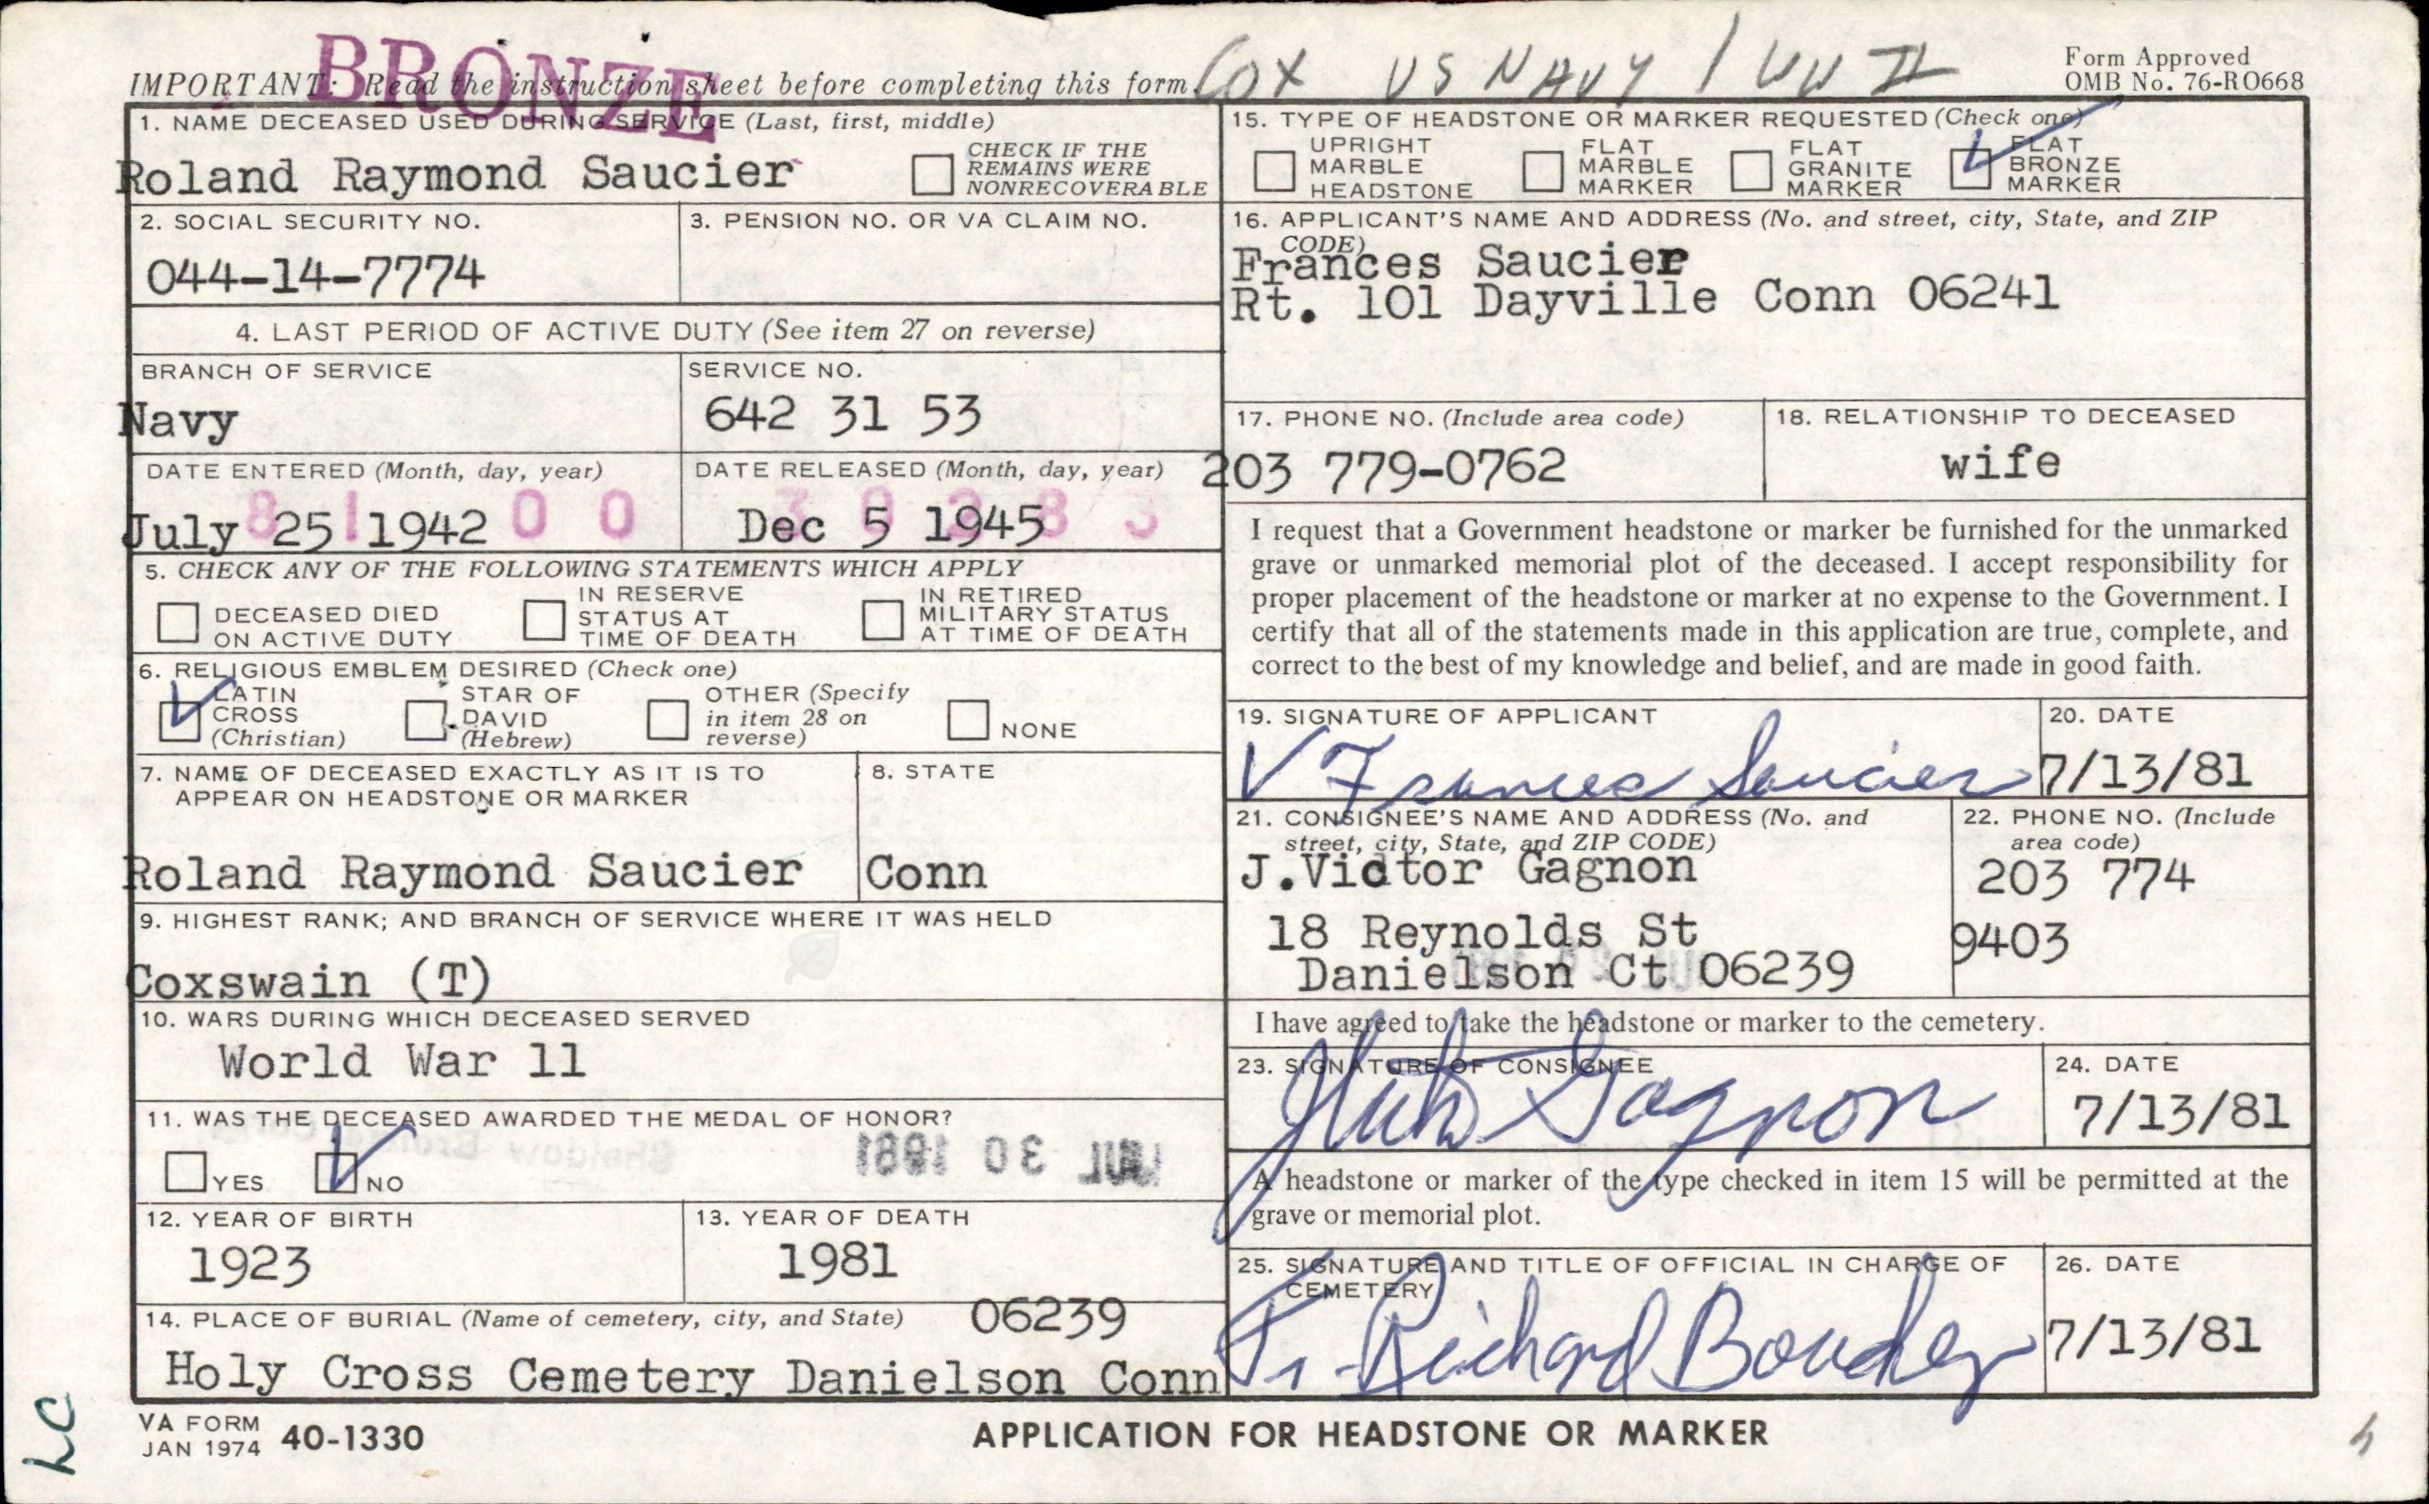 BRONZE
COX US NAVY / WW II
IMPORTANT: Read the instruction sheet before completing this form.
Form Approved
OMB No. 76-RO668
1. NAME DECEASED USED DURING SERVICE (Last, first, middle)
Roland Raymond Saucier
CHECK IF THE
REMAINS WERE
NONRECOVERABLE
2. SOCIAL SECURITY NO.
044-14-7774
3. PENSION NO. OR VA CLAIM NO.
4. LAST PERIOD OF ACTIVE DUTY (See item 27 on reverse)
BRANCH OF SERVICE
Navy
SERVICE NO.
642 31 53
DATE ENTERED (Month, day, year)
July 25 1942
DATE RELEASED (Month, day, year)
Dec 5 1945
5. CHECK ANY OF THE FOLLOWING STATEMENTS WHICH APPLY
DECEASED DIED
ON ACTIVE DUTY
IN RESERVE
STATUS AT
TIME OF DEATH
IN RETIRED
MILITARY STATUS
AT TIME OF DEATH
6. RELIGIOUS EMBLEM DESIRED (Check one)
LATIN
CROSS
(Christian)
STAR OF
DAVID
(Hebrew)
OTHER (Specify
in item 28 on
reverse)
NONE
7. NAME OF DECEASED EXACTLY AS IT IS TO
APPEAR ON HEADSTONE OR MARKER
Roland Raymond Saucier
8. STATE
Conn
9. HIGHEST RANK; AND BRANCH OF SERVICE WHERE IT WAS HELD
Coxswain (T)
10. WARS DURING WHICH DECEASED SERVED
World War 11
11. WAS THE DECEASED AWARDED THE MEDAL OF HONOR?
YES
NO
JUL 30 1981
12. YEAR OF BIRTH
1923
13. YEAR OF DEATH
1981
14. PLACE OF BURIAL (Name of cemetery, city, and State)
06239
Holy Cross Cemetery Danielson Conn
15. TYPE OF HEADSTONE OR MARKER REQUESTED (Check one)
UPRIGHT
MARBLE
HEADSTONE
FLAT
MARBLE
MARKER
FLAT
GRANITE
MARKER
FLAT
BRONZE
MARKER
16. APPLICANT'S NAME AND ADDRESS (No. and street, city, State, and ZIP
CODE)
Frances Saucier
Rt. 101 Dayville Conn 06241
17. PHONE NO. (Include area code)
203 779-0762
18. RELATIONSHIP TO DECEASED
wife
I request that a Government headstone or marker be furnished for the unmarked
grave or unmarked memorial plot of the deceased. I accept responsibility for
proper placement of the headstone or marker at no expense to the Government. I
certify that all of the statements made in this application are true, complete, and
correct to the best of my knowledge and belief, and are made in good faith.
19. SIGNATURE OF APPLICANT
Frances Saucier
20. DATE
7/13/81
21. CONSIGNEE'S NAME AND ADDRESS (No. and
street, city, State, and ZIP CODE)
J.Victor Gagnon
18 Reynolds St
Danielson Ct 06239
22. PHONE NO. (Include
area code)
203 774
9403
I have agreed to take the headstone or marker to the cemetery.
23. SIGNATURE OF CONSIGNEE
Gagnon
24. DATE
7/13/81
A headstone or marker of the type checked in item 15 will be permitted at the
grave or memorial plot.
25. SIGNATURE AND TITLE OF OFFICIAL IN CHARGE OF
CEMETERY
Fr. Richard
26. DATE
7/13/81
LC
VA FORM
JAN 1974 40-1330
APPLICATION FOR HEADSTONE OR MARKER